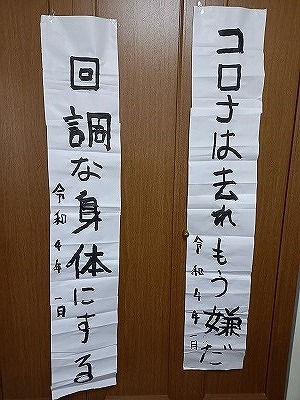 コロナは去れもう嫌だ
令和4年 月
回調な身体にする
令和4年 一日